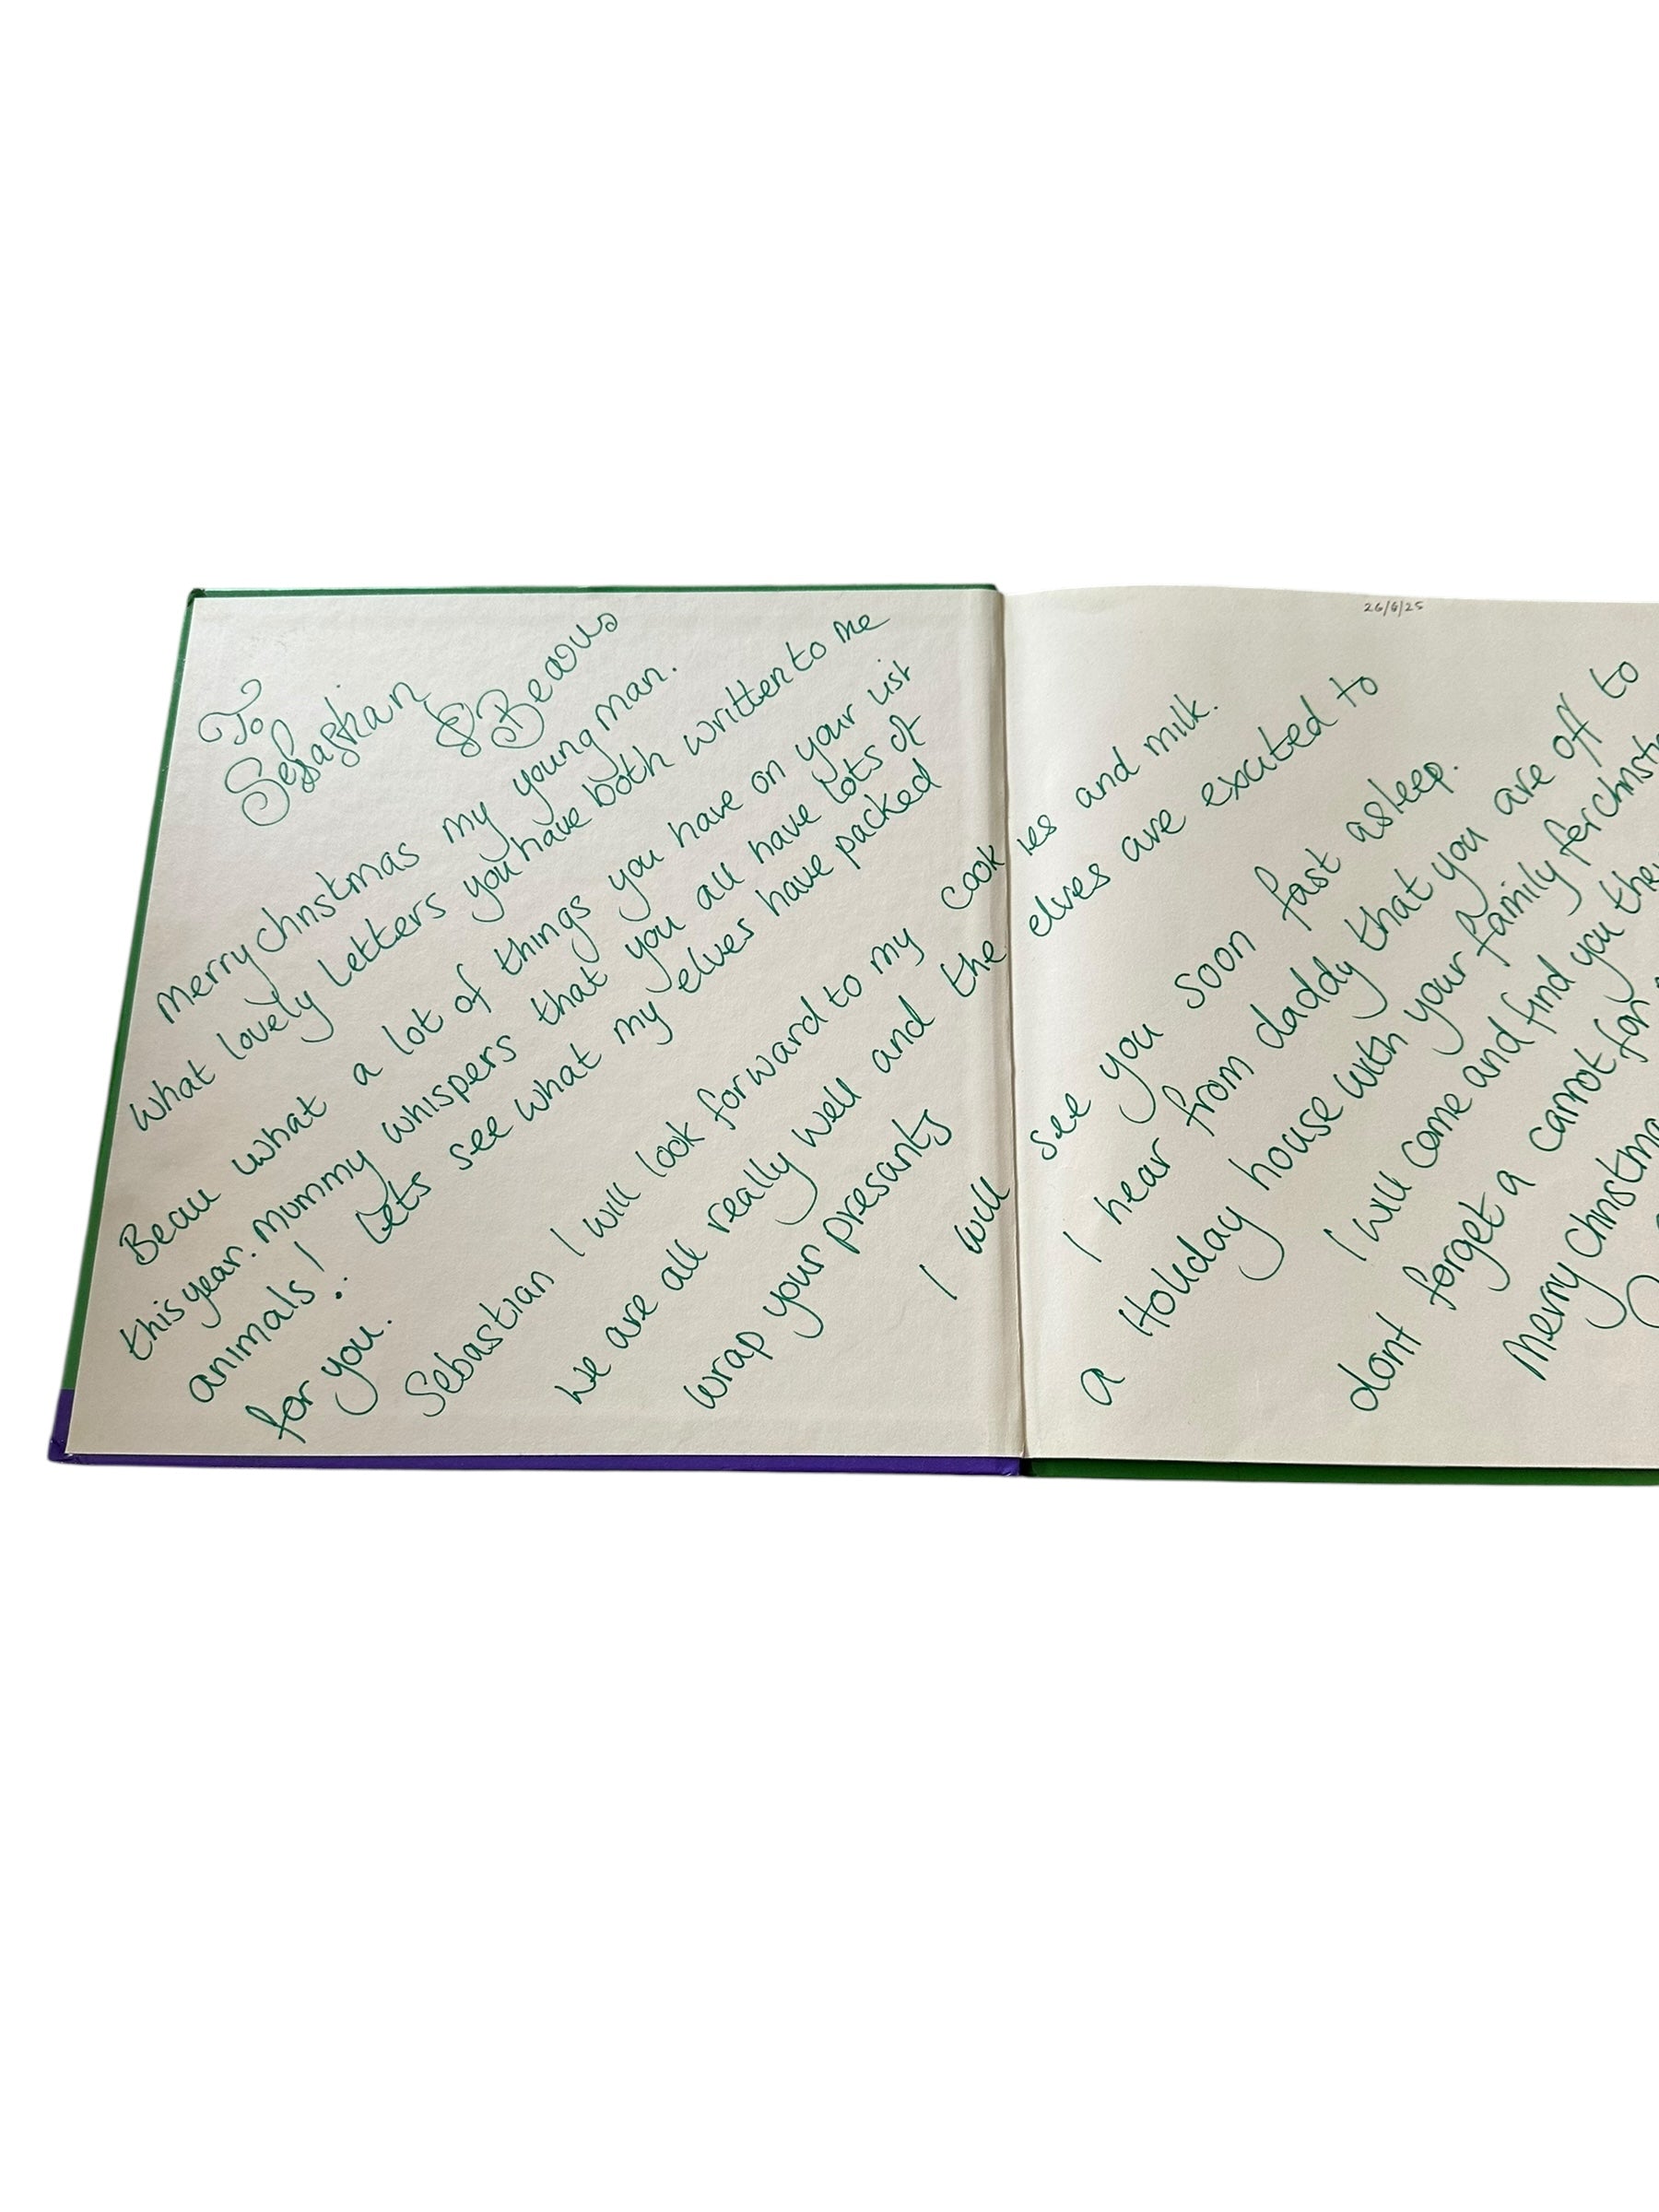 26/6/25
To
Sebastian
& Beaus
Merry christmas my young man.
What lovely letters you have both written to me
Beau what a lot of things you have on your list
this year. Mummy whispers that you all have lots of
animals! Lets see what my elves have packed
for you.
Sebastian I will look forward to my cookies and milk.
We are all really well and the elves are excited to
wrap your presants
I will see you soon fast asleep.
I hear from daddy that you are off to
a Holiday house with your family for christm
I will come and find you the
dont forget a carrot for
Merry Christma